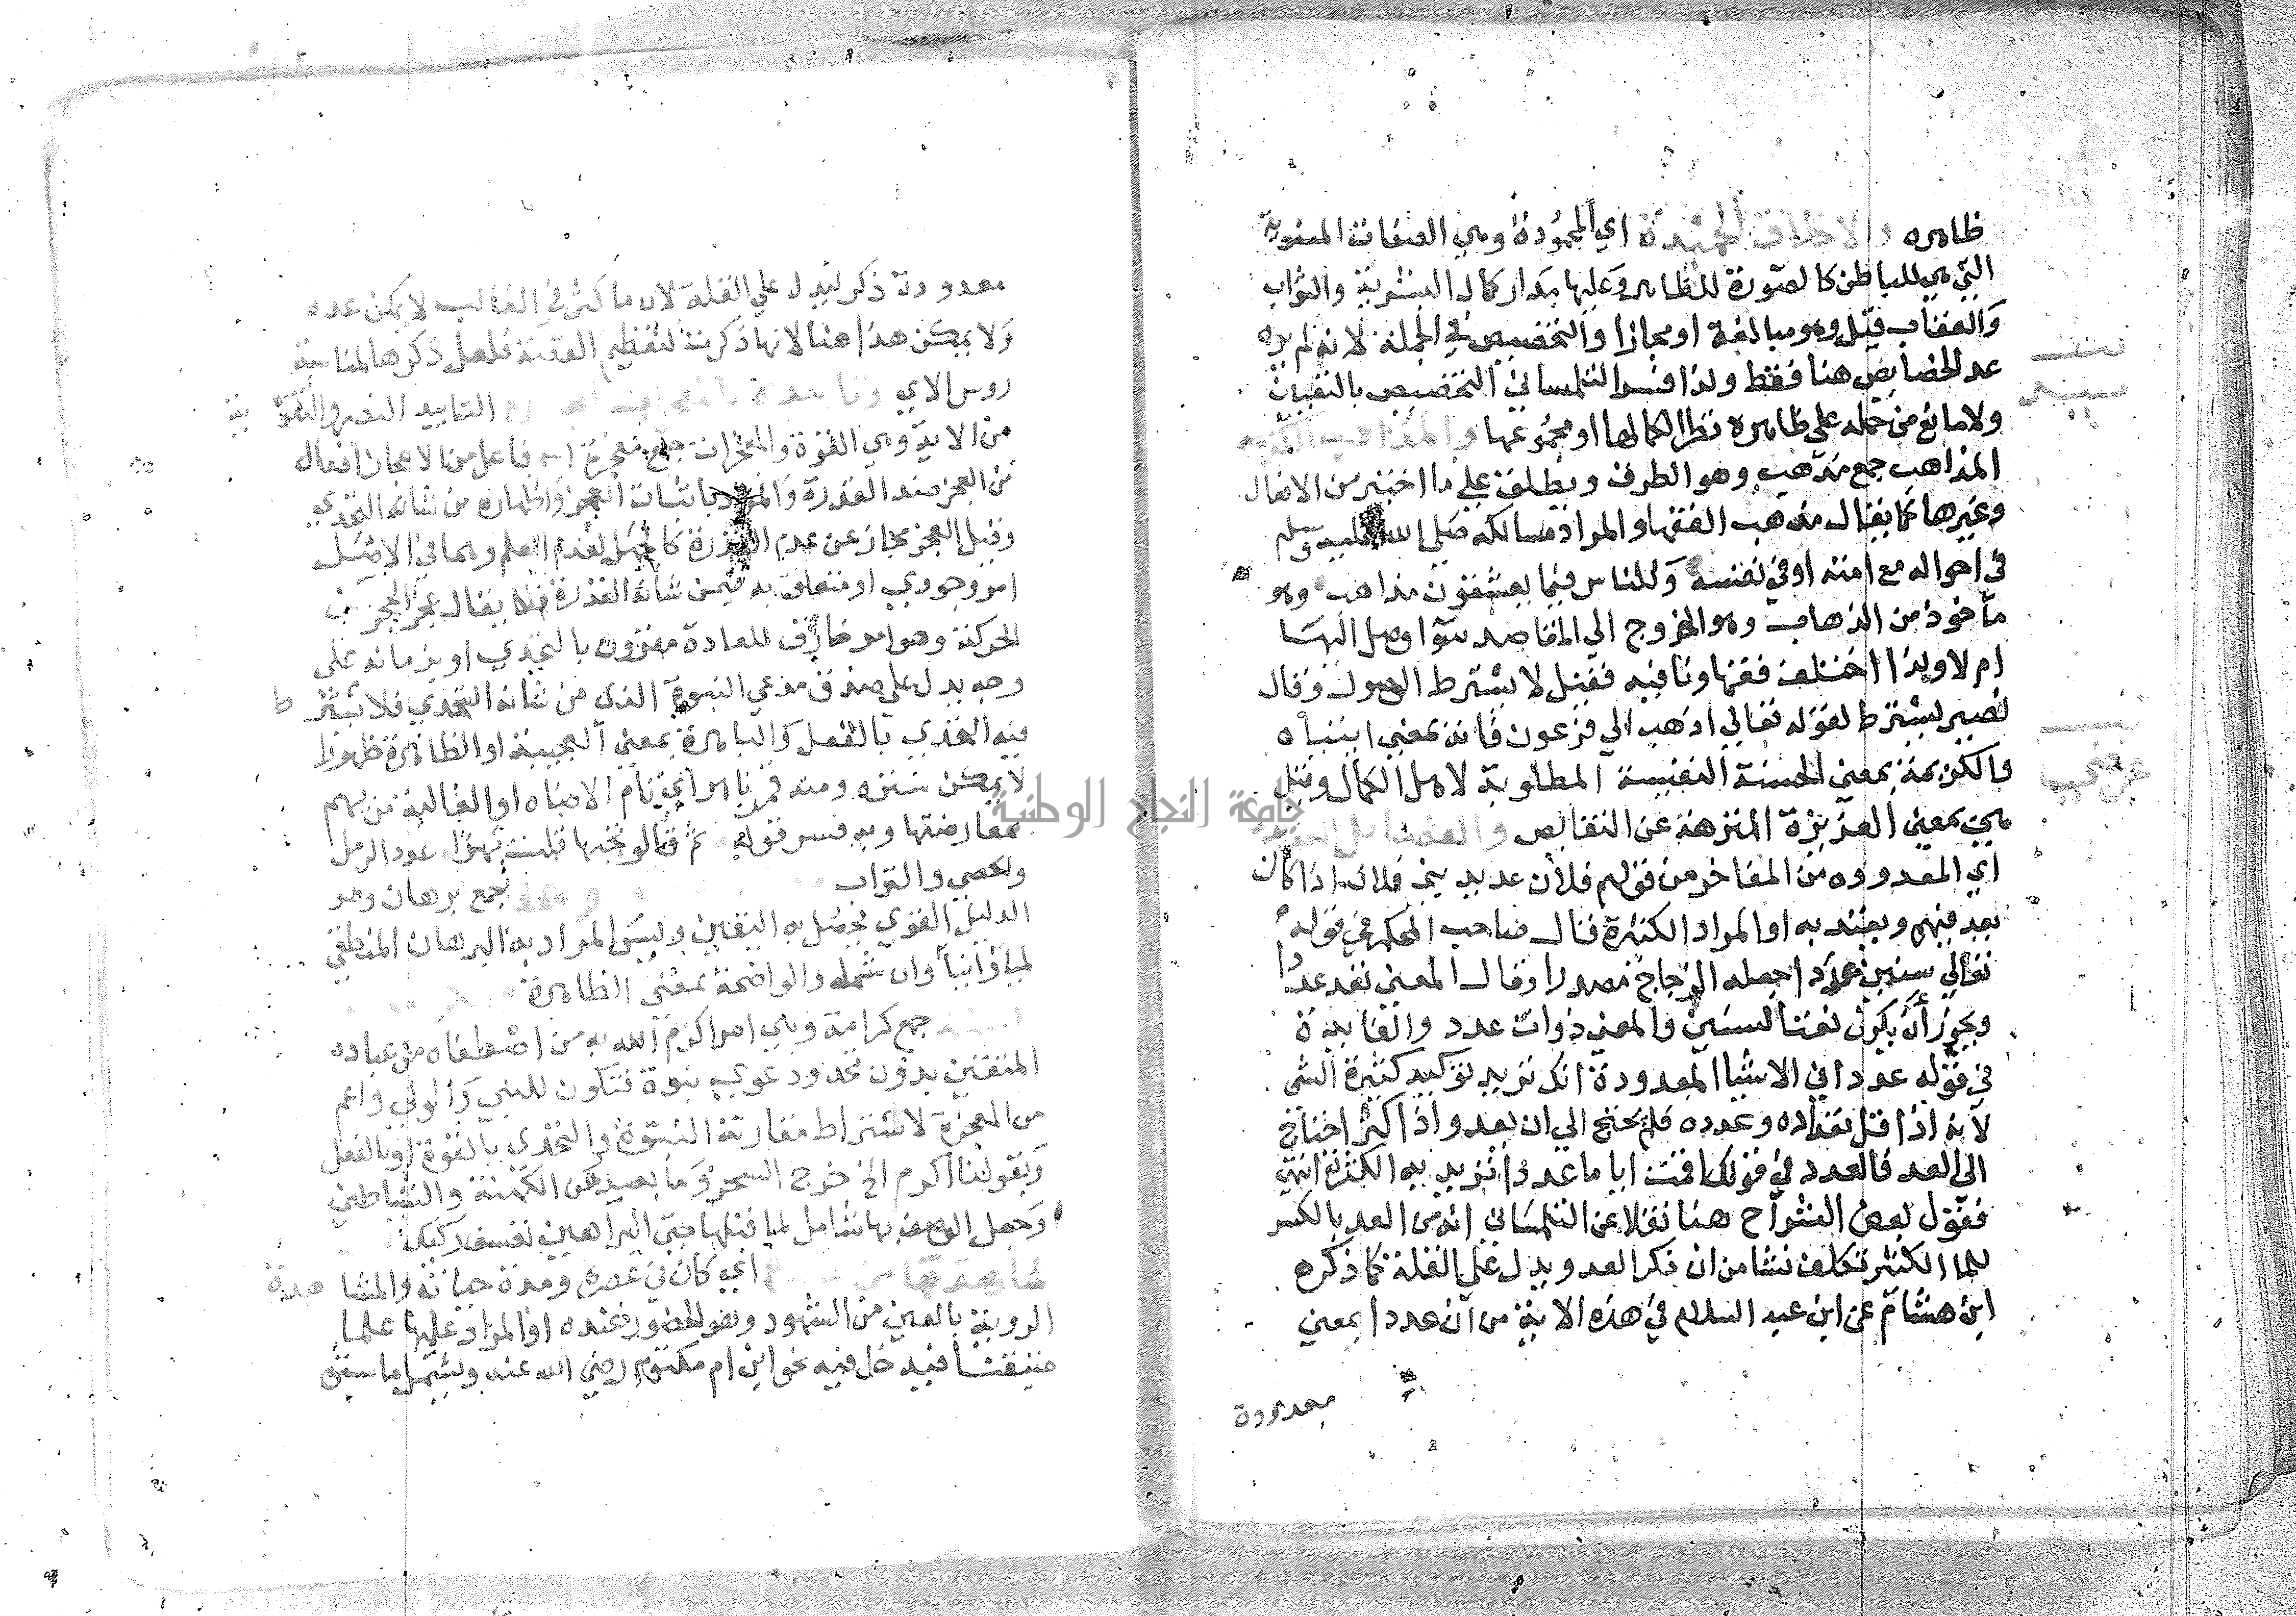 ظاهره والاخلاق الحميدة اي المحمودة وهي الصفات المعنوية
التي هي للباطن كالصورة للظاهر وعليها مدار كمال البشرية والثواب
والعقاب قيل وهو مبالغة او مجازا والتخصيص في الجملة لانه لم يرد
عد الخصايص هنا فقط ولذا فسر التلمساني التخصيص بالتعيين
ولا مانع من حمله على ظاهره نظرا لكمالها او مجموعها والمذاهب الكريمه
المذاهب جمع مذهب وهو الطرف ويطلق علي ما اختير من الافعال
وغيرها كما يقال مذهب الفقها والمراد مسالكه صلي الله عليه وسلم
في احواله مع امته او في نفسه وللناس فيما يعشقون مذاهب وهو
ماخوذ من الذهاب وهو الخروج الي المقاصد سوا وصل اليها
ام لا ولذا اختلف فقهاونا فيه فقيل لا يشترط الوصول وقال
نصير يشترط لقوله تعالي اذهب الي فرعون فانه بمعني ايتياه
والكريمة بمعني الحسنة النفيسة المطلوبة لاهل الكمال وقيل
هي بمعني العزيزة المنزهة عن النقايص والفضايل
اي المعدوده من المفاخر من قولهم فلان عديد بني فلان اذا كان
يعد فيهم ويعتد به او المراد الكثيرة قال صاحب المحكم في قوله
تعالي سنين عددا جعله الزجاج مصدرا وقال المعني تعد عددا
ويجوز أن يكون نعتا لسنين والمعني ذوات عدد والفايدة
في قوله عددا في الاشيا المعدودة انك تريد توكيد كثيرة الشي
لانه اذا قل تعداده وعدده فلم يحتج الي ان يعد واذا كثر احتاج
الى العد فالعدد في قولك اقمت اياما عددا تريد به الكثرة انتهي
فقول بعض الشراح هنا نقلا عن التلمساني انه من العد بالكسر
للما الكثير تكلف نشا من ان ذكر العد ويدل علي القلة كما ذكره
ابن هشام عن ابن عبد السلام في هذه الاية من ان عددا بمعني
معدودة
معدودة ذكر ليدل علي القلة لان ما كثر في الغالب لا يمكن عده
ولا يمكن هذا هنا لانها ذكرت لتعظيم القصة فلعل ذكرها لمناسبة
روس الاي التاييد النصر والتقوية
من الاية وهي القوة والمعجزات جمع معجزة اسم فاعل من الاعجاز افعال
من العجز ضد القدرة والمراد باثبات العجز واظهاره من شانه التحدي
وقيل العجز مجاز عن عدم القدرة كالجهل لعدم العلم وهما في الاصل
امر وجودي او متعلق به فيمن شانه القدرة فلا يقال عجز الحجر عن
الحركة وهو امر خارق للعادة مقرون بالتحدي او بزمانه على
وجه يدل على صدق مدعي النبوة الذي من شانه التحدي فلا يشترط
فيه التحدي بالفعل والباهرة بمعني العجيبة او الظاهرة ظهورا
لا يمكن ستره ومنه قمر باهر اي تام الاضاه او الغالبة من بهرهم
بمعارضتها وبه فسر قوله ثم قالوا تحبها قلت بهرا عدد الرمل
والحصي والتراب جمع برهان وهو
الدليل القوي يحصل به اليقين وليس المراد به البرهان المنطقي
لميا وانيا وان شمله والواضحة بمعني الظاهرة
جمع كرامة وهي امر اكرم الله به من اصطفاه من عباده
المتقين بدون تحد ودعوي نبوة فتكون للنبي والولي واعم
من المعجزة لاشتراط مقارنة النبوة والتحدي بالقوة او بالفعل
وبقولنا اكرم الخ خرج السحر وما يصدر عن الكهنة والشياطين
وجعل الوصف بها شامل لما قبلها حتي البراهين تعسف ركيك
شاهدها من اي كان في عصره ومدة حياته والمشاهدة
الروية بالعين من الشهود وهو الحضور عنده او المراد عليها علما
متيقنا فيدخل فيه نحو ابن ام مكتوم رضي الله عنه ويشمل ما سبق
جامعة النجاح الوطنية